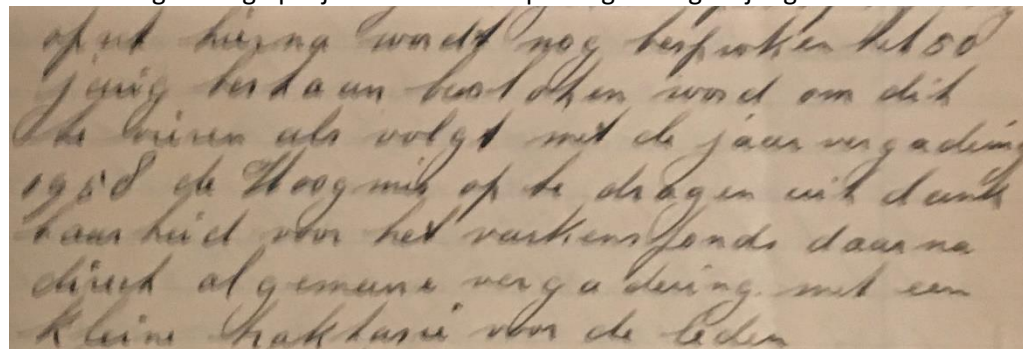 op ut hierna wordt nog besproken het 50
jarig bestaan besloten word om dit
te vieren als volgt met de jaar vergadering
1958 de Hoogmis op te dragen uit dank
baarheid voor het varkensfonds daarna
direct algemene vergadering met een
kleine traktasie voor de leden